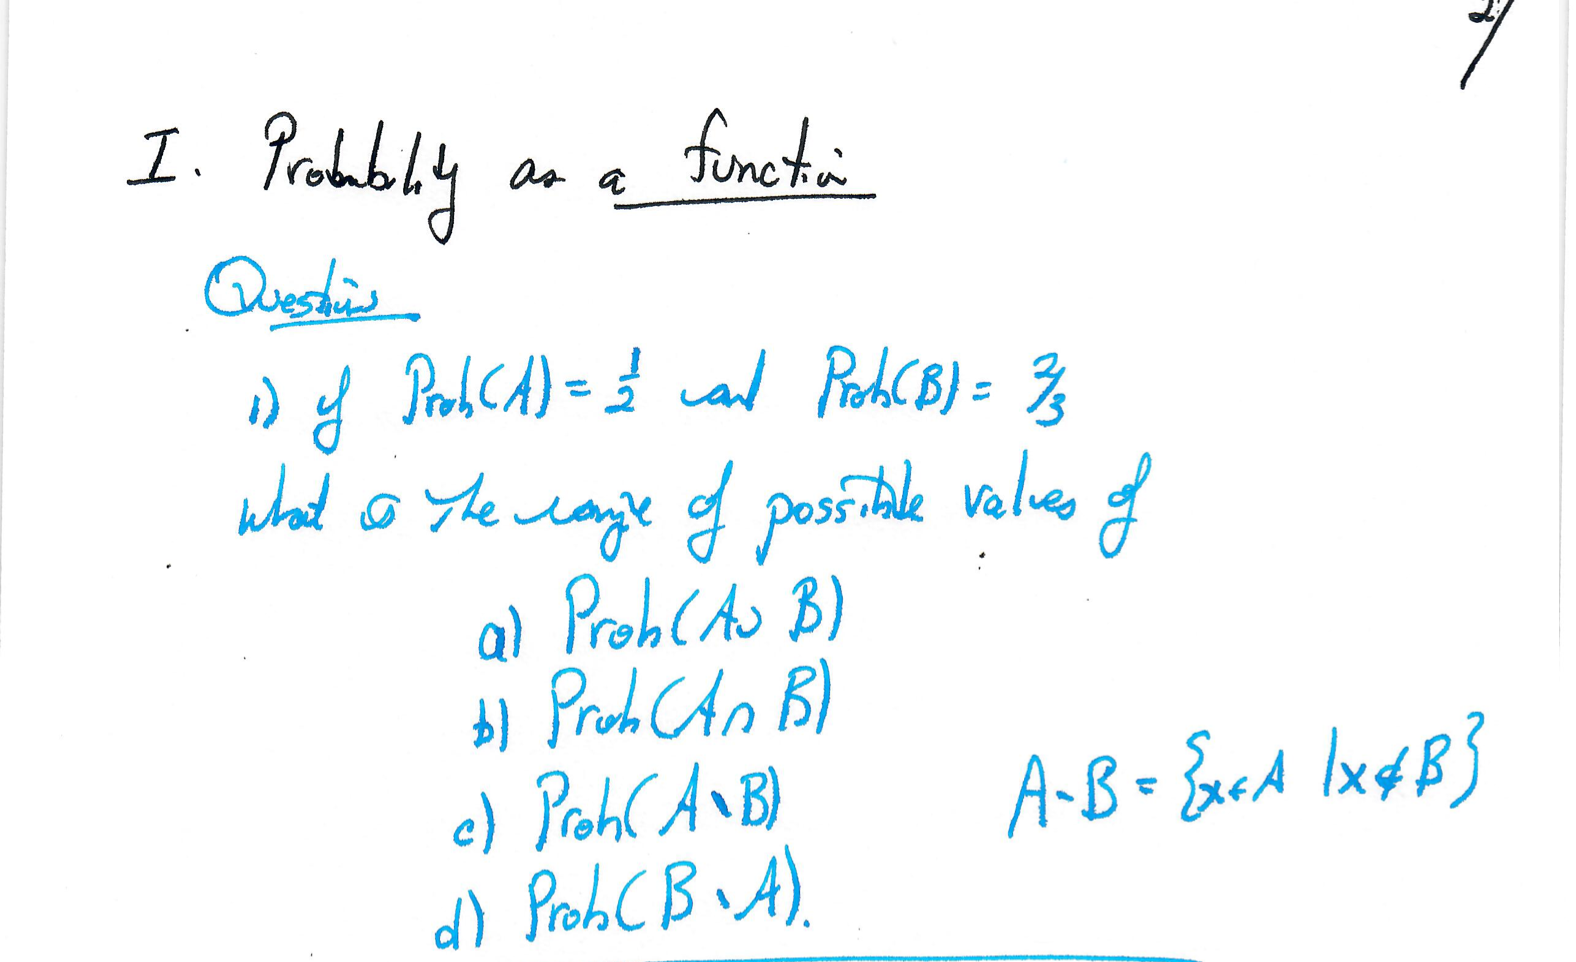 2/
I. Probability as a function
Questions
1) if Prob(A) = 1/2 and Prob(B) = 2/3
what is the range of possible values of
a) Prob(A ∪ B)
b) Prob(A ∩ B)
c) Prob(A \ B)
A \ B = {x ∈ A | x ∉ B}
d) Prob(B \ A).